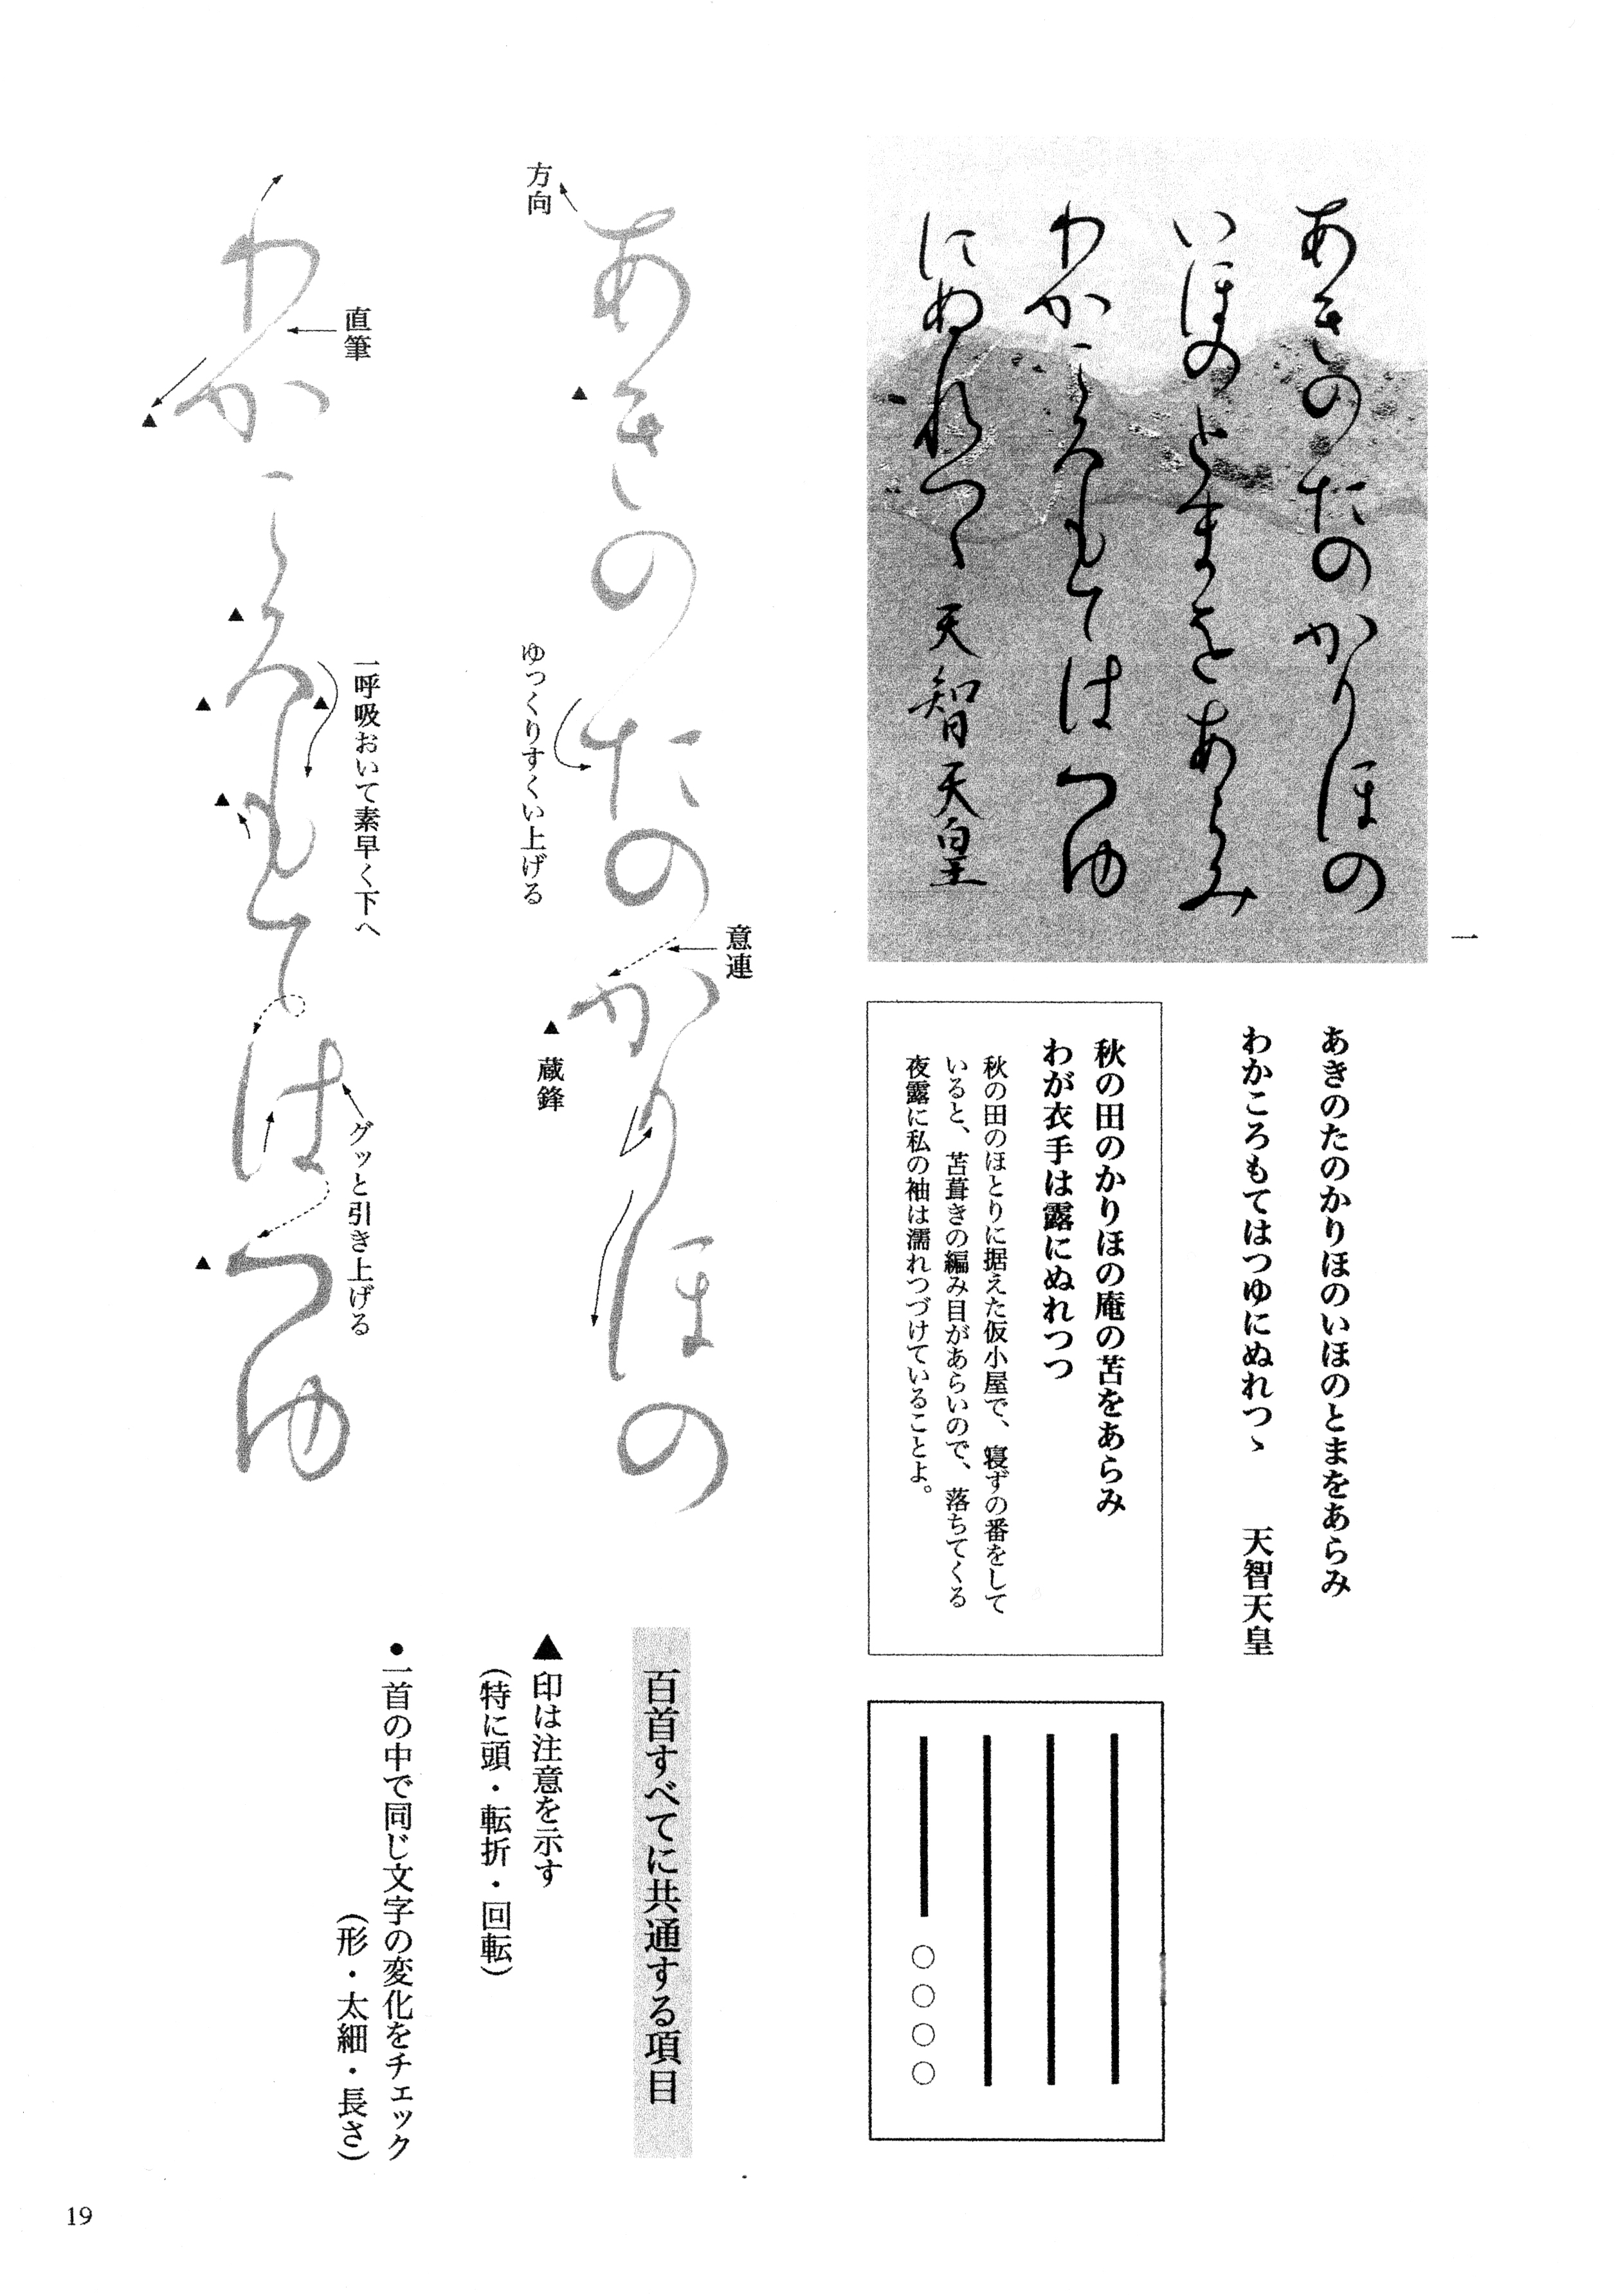 一
あきのたのかりほの
いほのとまをあらみ
わかころもてはつゆ
にぬれつゝ 天智天皇
あきのたのかりほのいほのとまをあらみ
わかころもてはつゆにぬれつゝ 天智天皇
秋の田のかりほの庵の苫をあらみ
わが衣手は露にぬれつつ
秋の田のほとりに据えた仮小屋で、寝ずの番をして
いると、苫葺きの編み目があらいので、落ちてくる
夜露に私の袖は濡れつづけていることよ。
○○○○
意連
あきのたのかりほの
方向
ゆっくりすくい上げる
▲蔵鋒
直筆
一呼吸おいて素早く下へ
グッと引き上げる
わかころもてはつゆ
百首すべてに共通する項目
▲印は注意を示す
(特に頭・転折・回転)
●一首の中で同じ文字の変化をチェック
(形・太細・長さ)
19